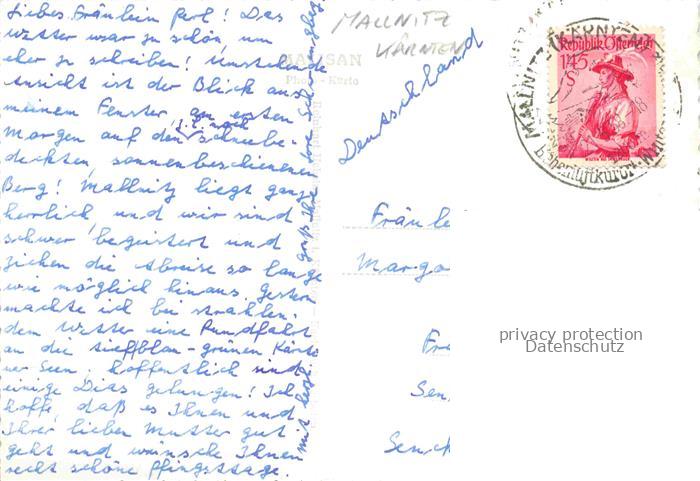 Liebes Fräulein Perl! Das
Wetter war zu schön, um
eher zu schreiben! Umstehende
Ansicht ist der Blick aus
meinem Fenster am ersten
Morgen auf den z.T. noch schneebe-
deckten, sonnenbeschienenen
Berg! Mallnitz liegt ganz
herrlich, und wir sind
schwer begeistert und
ziehen die Abreise so lange
wie möglich hinaus. Gestern
machte ich bei strahlen-
dem Wetter eine Rundfahrt
an die tiefblau-grünen Kärnt-
ner Seen. Hoffentlich sind
einige Dias gelungen! Ich
hoffe, daß es Ihnen und
Ihrer lieben Mutter gut
geht und wünsche Ihnen
recht schöne Pfingsttage.
mit herzl. Gruß Ihre
MALLNITZ
KÄRNTEN
Deutschland
Republik Österreich
1'45
S
MALLNITZ (KÄRNTEN)
Höhenluftkurort
Fräule
Margo
Fr
Sen
Senck
privacy protection
Datenschutz